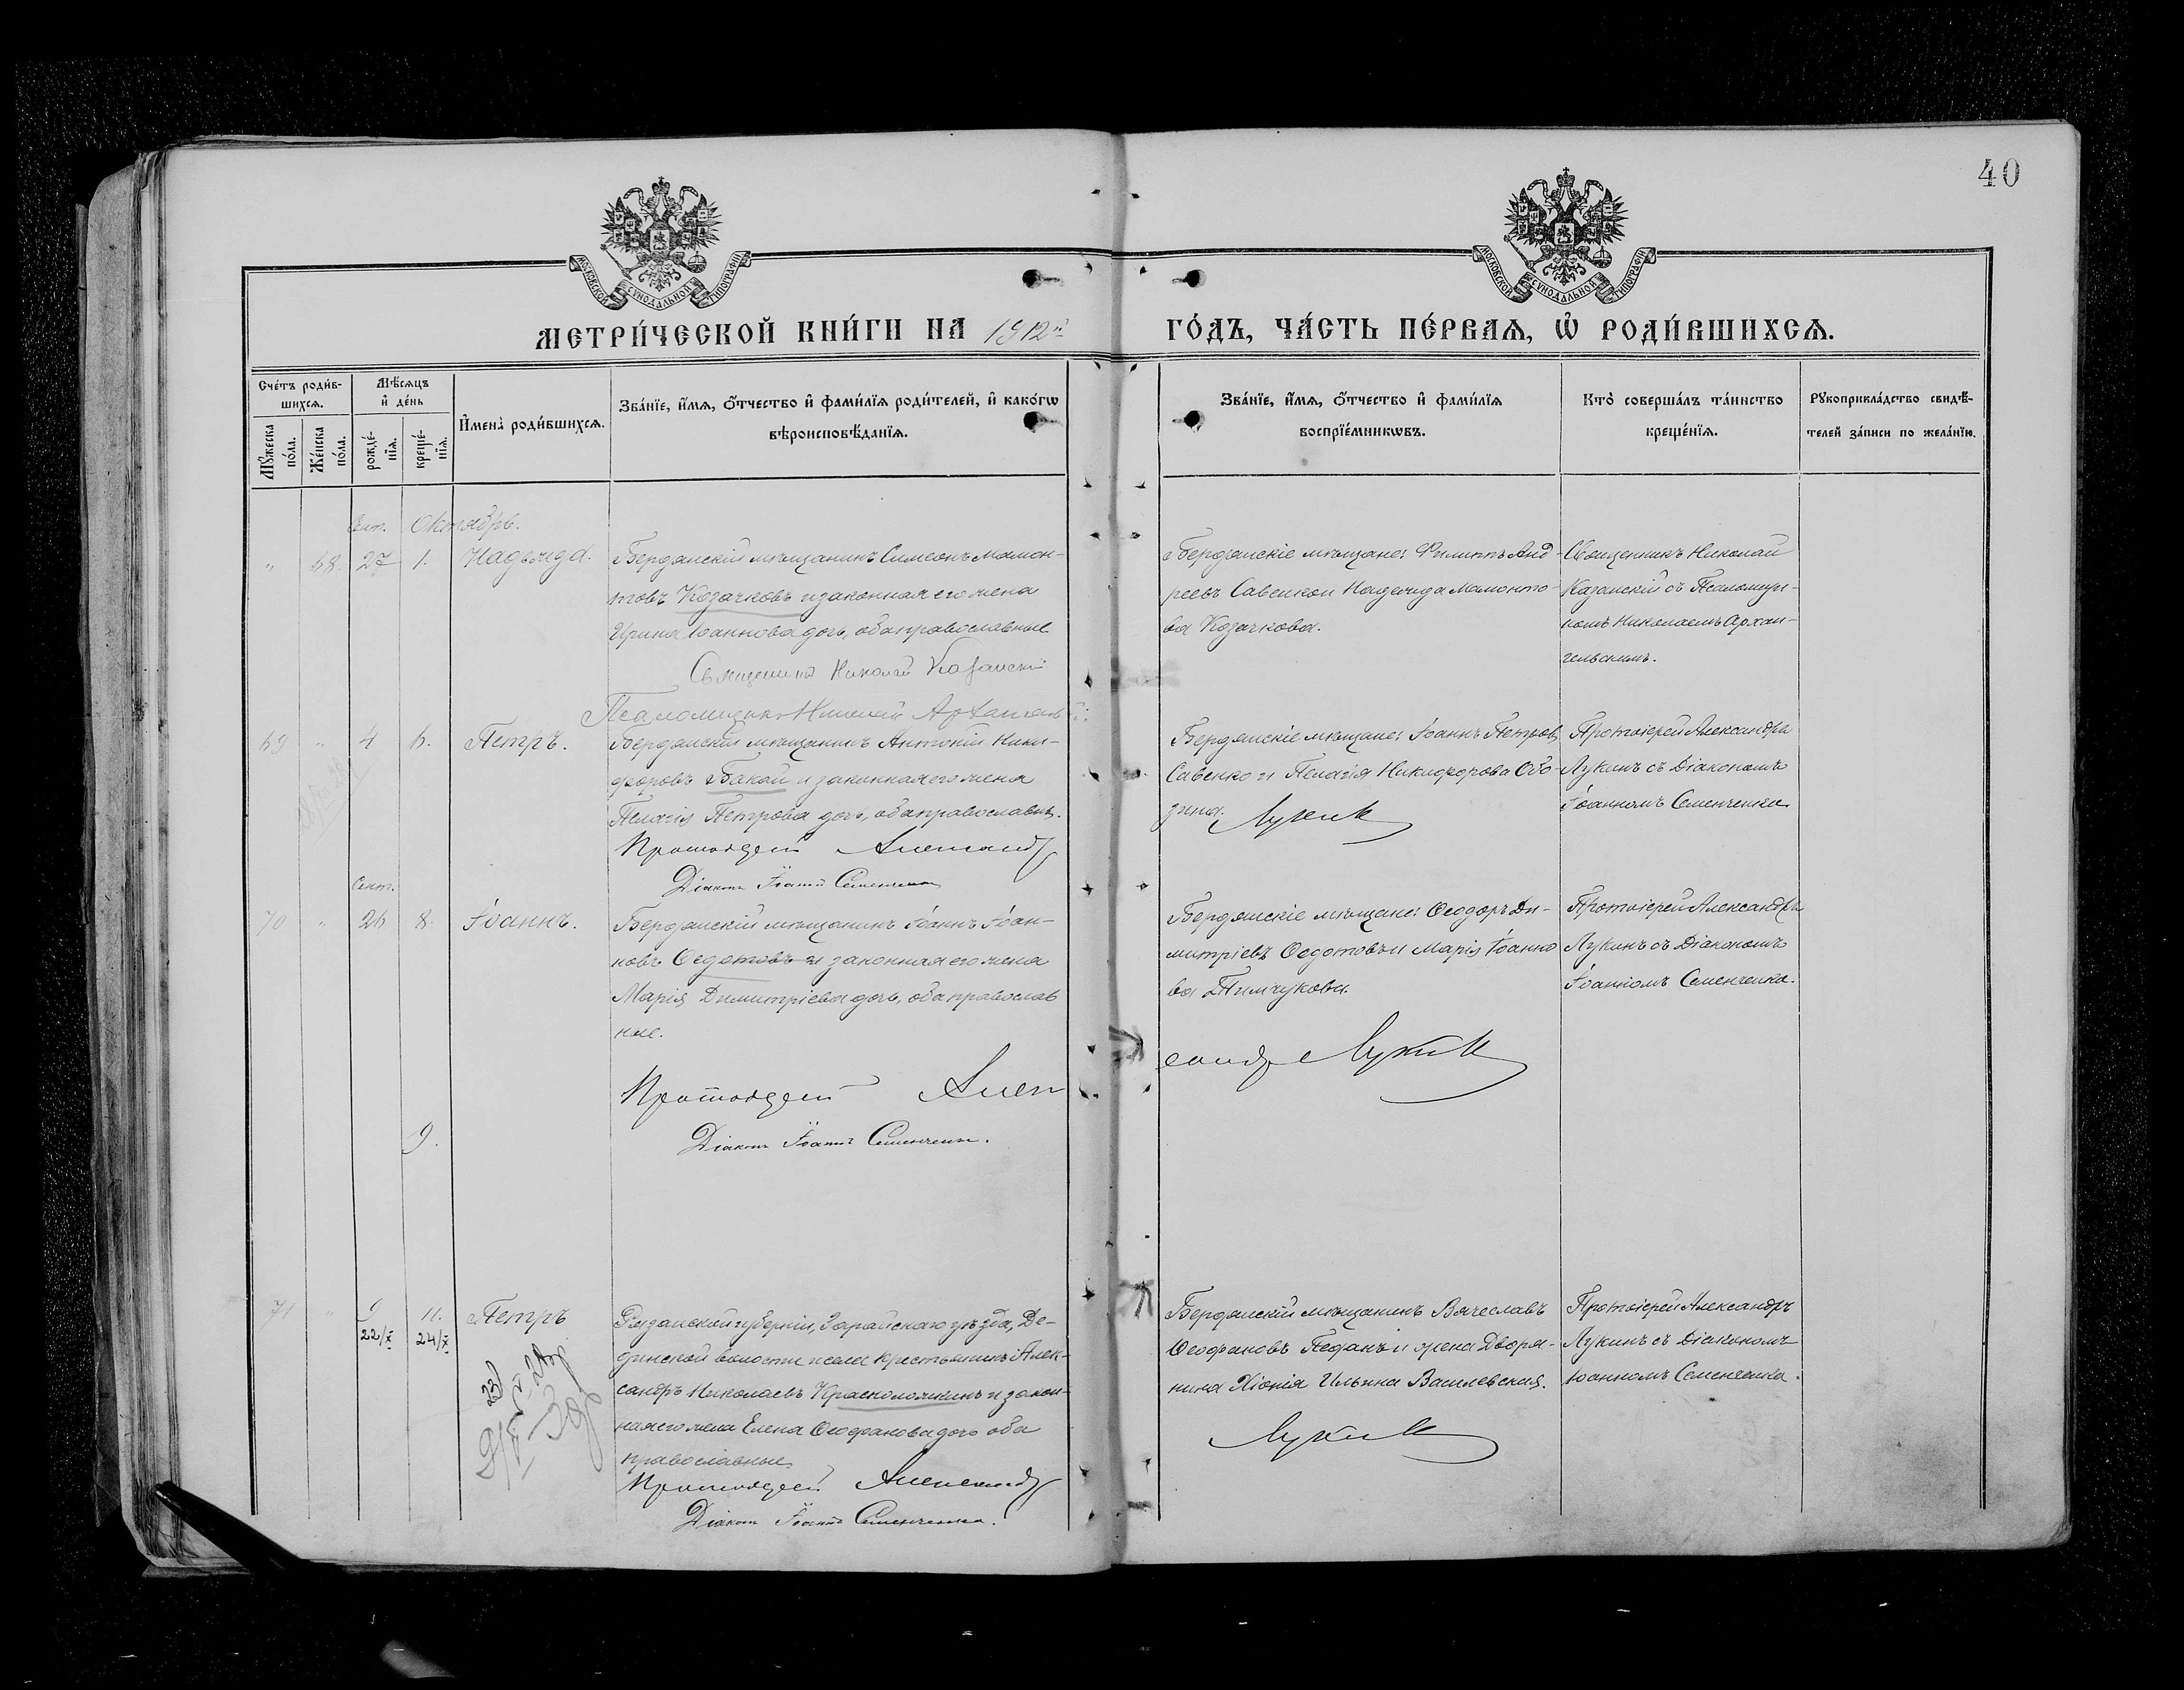 40
МОСКОВСКОЙ СѴНОДАЛЬНОЙ ТИПОГРАФІИ
МОСКОВСКОЙ СѴНОДАЛЬНОЙ ТИПОГРАФІИ
МЕТРИ́ЧЕСКОЙ КНИ́ГИ НА 1912й ГО́ДЪ, ЧА́СТЬ ПЕ́РВАѦ, Ѡ҆ РОДИ́ВШИХСѦ.
Сче́тъ роди́в-
шихсѧ.
Мꙋ́жеска по́ла.
Же́нска по́ла.
Мѣ́сѧцъ
и҆ де́нь
рожде́-
нїѧ.
креще́-
нїѧ.
И҆мена̀ роди́вшихсѧ.
Зва́нїе, и҆́мѧ, ѻ҆́тчество и҆ фами́лїѧ роди́телей, и҆ како́гѡ
вѣроисповѣ́данїѧ.
Зва́нїе, и҆́мѧ, ѻ҆́тчество и҆ фами́лїѧ
воспрїе́мникѡвъ.
Кто̀ соверша́лъ та́инство
креще́нїѧ.
Рꙋкоприкла́дство свидѣ́-
телей за́писи по жела́нїю.
Сент. Октябрь.
" 68. 27 1. Надежда.
Бердянскій мѣщанинъ Симеонъ Мамон-
товъ Козачковъ и законная его жена
Ирина Іоаннова дочь, оба православные
Священникъ Николай Казанскій
Псаломщикъ Николай Архангельскій
Бердянскіе мѣщане: Филиппъ Анд-
реевъ Савенко и Надежда Мамонто-
ва Козачкова.
Священникъ Николай
Казанскій съ Псаломщи-
комъ Николаемъ Архан-
гельскимъ.
69 " 4 6. Петръ.
Бердянскій мѣщанинъ Антоній Ники-
форовъ Бакай и законная его жена
Пелагія Петрова дочь, оба православн.
Протоіерей Александръ
Діаконъ Іоаннъ Семенченко
Бердянскіе мѣщане: Іоаннъ Петровъ
Савенко и Пелагія Никифорова Обо-
зина.
Лукинъ
Протоіерей Александръ
Лукинъ съ Діакономъ
Іоанномъ Семенченко.
Сент.
70 " 26 8. Іоаннъ.
Бердянскій мѣщанинъ Іоаннъ Іоан-
новъ Ѳедотовъ и законная его жена
Марія Димитріева дочь, оба православ
ные.
Протоіерей Алек
Діаконъ Іоаннъ Семенченко.
9.
Бердянскіе мѣщане: Ѳеодоръ Ди-
митріевъ Ѳедотовъ и Марія Іоанно
ва Тимчукова.
сандръ Лукинъ
Протоіерей Александръ
Лукинъ съ Діакономъ
Іоанномъ Семенченко.
71 " 9 11. Петръ
22/X 24/X
Рязанской губерніи, Зарайскаго уѣзда, Де-
динской волости и села крестьянинъ Алек-
сандръ Николаевъ Красноложкинъ и закон-
ная его жена Елена Ѳеофанова дочь оба
православные.
Протоіерей Александръ
Діаконъ Іоаннъ Семенченко.
Бердянскій мѣщанинъ Вячеславъ
Ѳеофановъ Педанъ и жена Дворя-
нина Хіонія Ильина Василевская.
Лукинъ
Протоіерей Александръ
Лукинъ съ Діакономъ
Іоанномъ Семенченко.